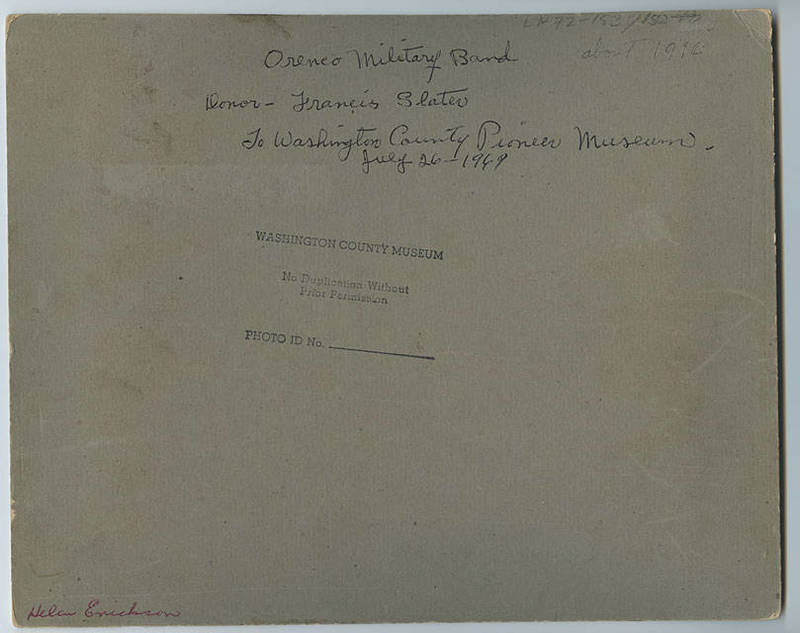 Orenco Military Band
about 1916
Donor - Francis Slater
To Washington County Pioneer Museum.
July 26 - 1969
WASHINGTON COUNTY MUSEUM
No Duplication Without
Prior Permission
PHOTO ID No.
Helen Erickson